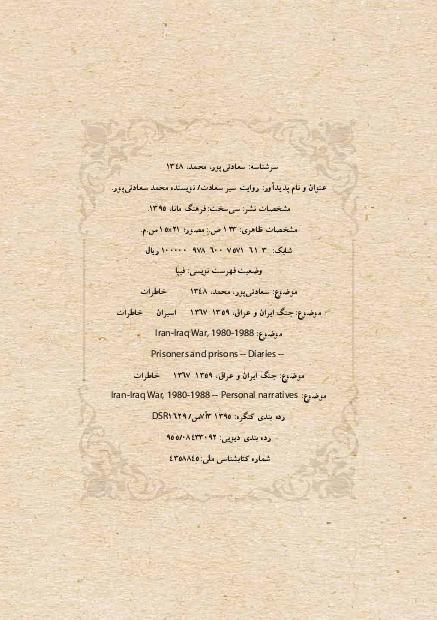 سرشناسه: سعادتی‌پور، محمد، ۱۳۴۸
عنوان و نام پدیدآور: روایت سیر سعادت/ نویسنده محمد سعادتی‌پور.
مشخصات نشر: سی‌سخت: فرهنگ مانا، ۱۳۹۵.
مشخصات ظاهری: ۱۳۳ ص: مصور؛ ۲۱×۱۵س.م.
شابک: ۳ ۶۱ ۷۵۷۱ ۶۰۰ ۹۷۸ ۱۰۰۰۰۰ ریال
وضعیت فهرست نویسی: فیپا
موضوع: سعادتی‌پور، محمد، ۱۳۴۸ خاطرات
موضوع: جنگ ایران و عراق، ۱۳۵۹ ۱۳۶۷ اسیران خاطرات
موضوع: Iran-Iraq War, 1980-1988
Prisoners and prisons -- Diaries --
موضوع: جنگ ایران و عراق، ۱۳۵۹ ۱۳۶۷ خاطرات
موضوع: Iran-Iraq War, 1980-1988 -- Personal narratives
رده بندی کنگره: ۱۳۹۵ /DSR۱۶۲۹
رده بندی دیویی: ۹۵۵/۰۸۴۳۳۰۹۲
شماره کتابشناسی ملی: ۴۳۵۸۸۴۵